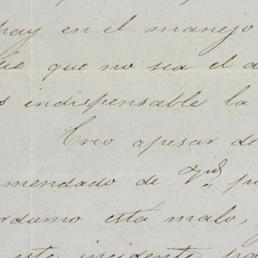 hay en el manejo
que no sea el
indispensable la
Creo apesar de
mendado de
está malo,
este incidente